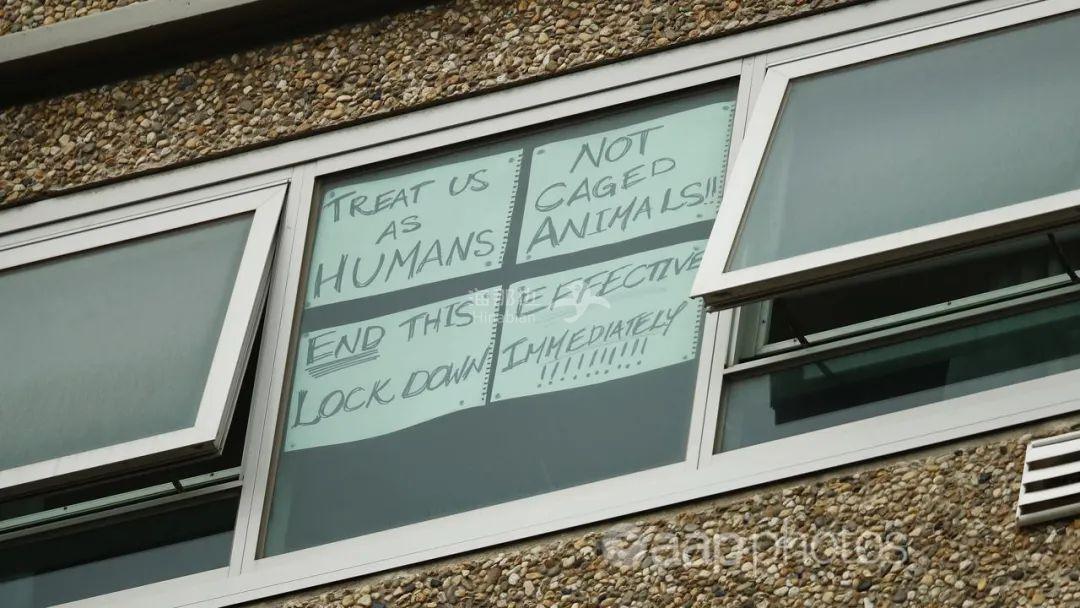 TREAT US
AS
HUMANS
NOT
CAGED
ANIMALS!!
END THIS
LOCK DOWN
EFFECTIVE
IMMEDIATELY
!!!!!!!!!!
Hinabian
aap photos